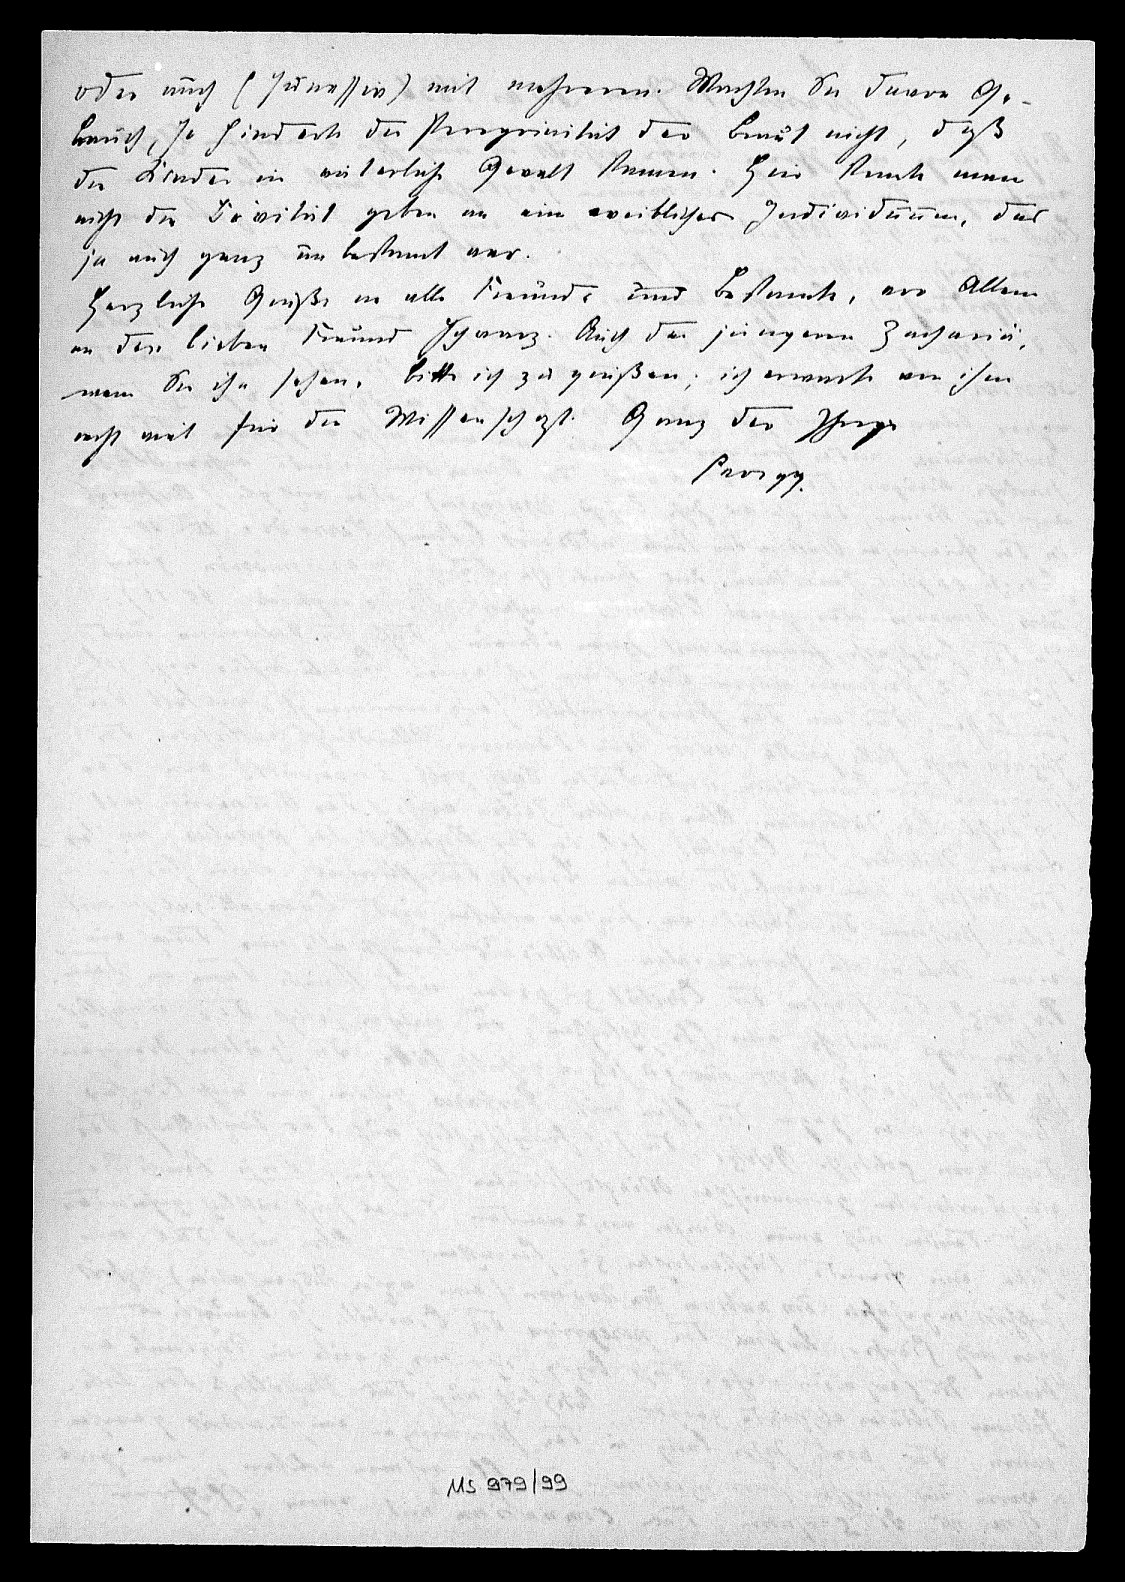 oder auch (sucessiv) mit mehreren. Machten Sie davon Ge-
brauch, so hinderte die Peregrinität der Braut nicht, daß
die Kinder in väterliche Gewalt kamen. Hier konnte man
nicht die Civität geben an ein weibliches Individuum, das
ja auch ganz unbekannt war.
Herzliche Grüße an alle Freunde und Bekannte, vor Allem
an den lieben Freund Schwarz. Auch den jüngeren Zachariä,
wenn Sie ihn sehen, bitte ich zu grüßen; ich erwarte von ihm
recht viel für die Wissenschaft. Ganz der Ihrige
MS 979/99